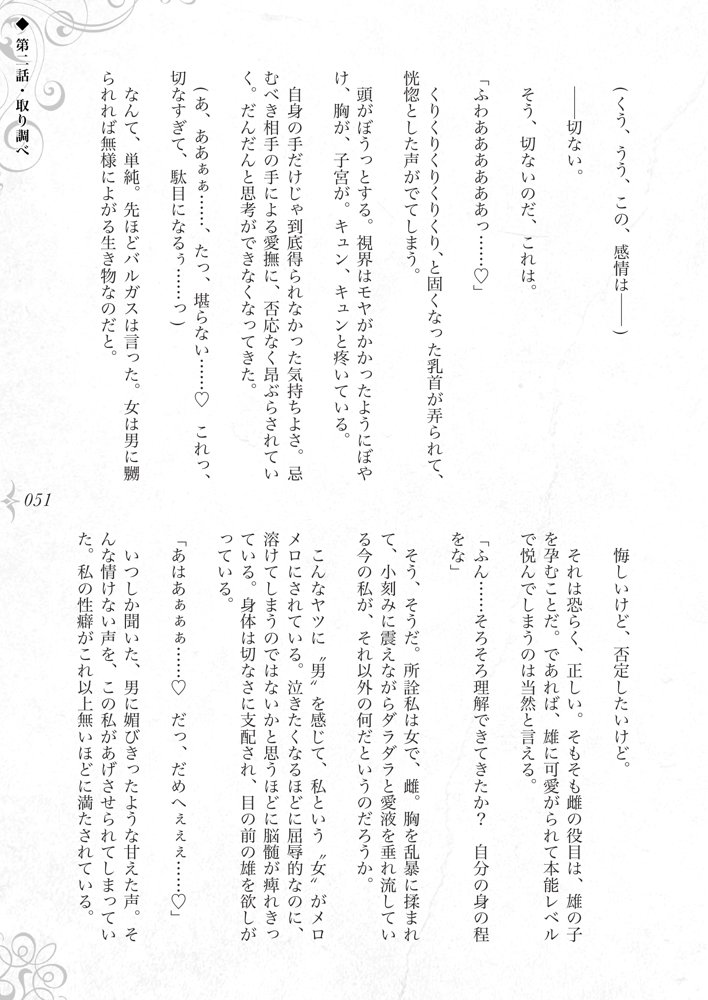 ◆第二話・取り調べ
(くう、うう、この、感情は――)
――切ない。
そう、切ないのだ、これは。
「ふわああああああっ……♡」
くりくりくりくりくり、と固くなった乳首が弄られて、
恍惚とした声がでてしまう。
頭がぼうっとする。視界はモヤがかかったようにぼや
け、胸が、子宮が。キュン、キュンと疼いている。
自身の手だけじゃ到底得られなかった気持ちよさ。忌
むべき相手の手による愛撫に、否応なく昂ぶらされてい
く。だんだんと思考ができなくなってきた。
(あ、ああぁぁ……、たっ、堪らない……♡　これっ、
切なすぎて、駄目になるぅ……っ)
なんて、単純。先ほどバルガスは言った。女は男に嬲
られれば無様によがる生き物なのだと。
悔しいけど、否定したいけど。
それは恐らく、正しい。そもそも雌の役目は、雄の子
を孕むことだ。であれば、雄に可愛がられて本能レベル
で悦んでしまうのは当然と言える。
「ふん……そろそろ理解できてきたか？　自分の身の程
をな」
そう、そうだ。所詮私は女で、雌。胸を乱暴に揉まれ
て、小刻みに震えながらダラダラと愛液を垂れ流してい
る今の私が、それ以外の何だというのだろうか。
こんなヤツに〝男〟を感じて、私という〝女〟がメロ
メロにされている。泣きたくなるほどに屈辱的なのに、
溶けてしまうのではないかと思うほどに脳髄が痺れきっ
ている。身体は切なさに支配され、目の前の雄を欲しが
っている。
「あはあぁぁぁ……♡　だっ、だめへぇぇぇ……♡」
いつしか聞いた、男に媚びきったような甘えた声。そ
んな情けない声を、この私があげさせられてしまってい
た。私の性癖がこれ以上無いほどに満たされている。
051